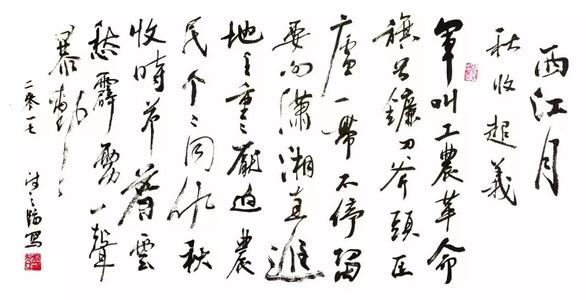 西江月
秋收起義
軍叫工農革命
旗号鐮刀斧頭匡
廬一帶不停留
要向瀟湘直進
地主重〻壓迫農
民个〻同仇秋
收時節暮雲
愁霹靂一聲
暴動
二零一七
寫